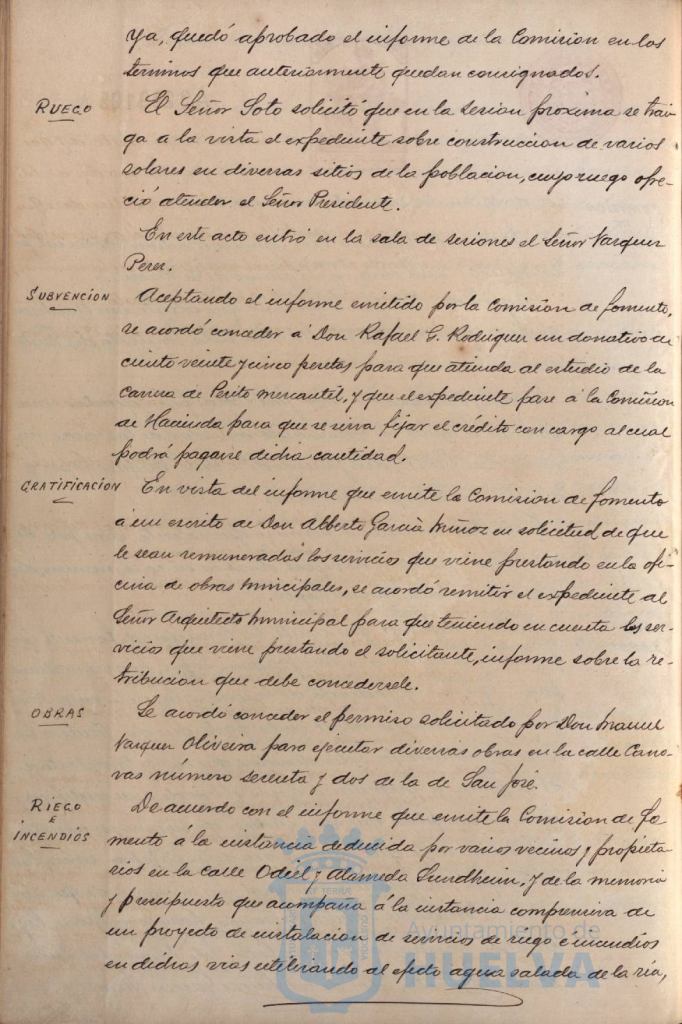 ya, quedó aprobado el informe de la Comision en los
terminos que anteriormente quedan consignados.
RUEGO
El Señor Soto solicitó que en la sesion proxima se trai-
ga a la vista el expediente sobre construccion de varios
solares en diversas sitios de la poblacion, cuyo ruego ofre-
ció atender el Señor Presidente.
En este acto entró en la sala de sesiones el Señor Vazquez
Perez.
SUBVENCION
Aceptando el informe emitido por la Comision de fomento,
se acordó conceder á Don Rafael G. Rodriguez un donativo de
ciento veinte y cinco pesetas para que atienda al estudio de la
carrera de Perito mercantil, y que el expediente pase á la Comision
de Hacienda para que se sirva fijar el crédito con cargo al cual
podrá pagarse dicha cantidad.
GRATIFICACION
En vista del informe que emite la Comision de fomento
á un escrito de Don Alberto Garcia Muñoz en solicitud de que
le sean remunerados los servicios que viene prestando en la ofi-
cina de obras municipales, se acordó remitir el expediente al
Señor Arquitecto municipal para que teniendo en cuenta los ser-
vicios que viene prestando el solicitante, informe sobre la re-
tribucion que debe concedersele.
OBRAS
Se acordó conceder el permiso solicitado por Don Manuel
Vazquez Oliveira para ejecutar diversas obras en la calle Cano-
vas número setenta y dos de la de San José.
RIEGO
E
INCENDIOS
De acuerdo con el informe que emite la Comision de fo-
mento á la instancia deducida por varios vecinos y propieta-
rios en la calle Odiel y Alameda Sundheim, y de la memoria
y presupuesto que acompaña á la instancia comprensiva de
un proyecto de instalacion de servicios de riego e incendios
en dichas vias utilizando al efecto agua salada de la ria,
Ayuntamiento de
HUELVA